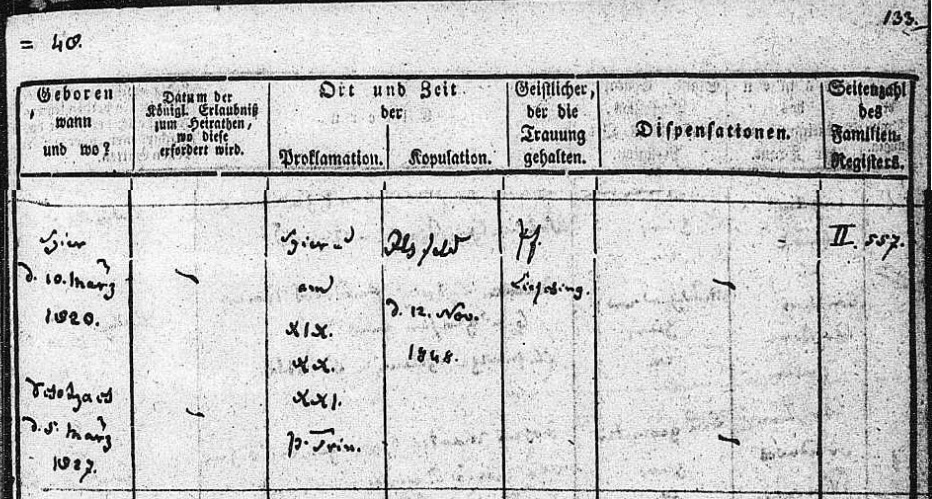 133.
= 48.
Geboren
wann
und wo?
Datum der
Königl. Erlaubniß
zum Heirathen,
wo diese
erfordert wird.
Ort und Zeit
der
Proklamation.
Kopulation.
Geistlicher,
der die
Trauung
gehalten.
Dispensationen.
Seitenzahl
des
Familien-
Registers.
hier
d. 10. März
1820.
d. 5. März
1827.
hier
am
XIX.
XX.
XXI.
p. Trin.
d. 12. Nov.
1848.
Pf.
II. 557.